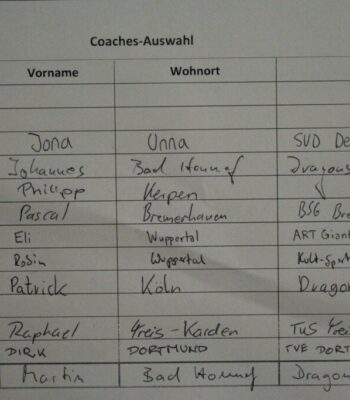 Coaches-Auswahl
Vorname Wohnort
Jona Unna SVD De
Johannes Bad Honnef Dragons
Philipp Kerpen
Pascal Bremerhaven BSG Bre
Eli Wuppertal ART Giant
Robin Wuppertal Kult-Sport
Patrick Köln Dragon
Raphael Kreis-Karden TuS Krei
DIRK DORTMUND TVE DORT
Martin Bad Honnef Dragon